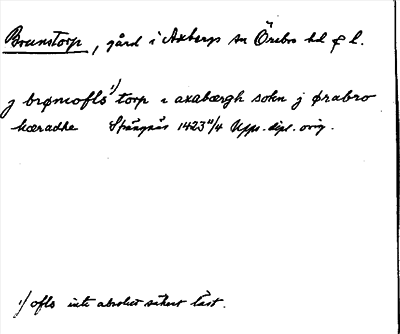 Brunstorp, gård i Axbergs sn Örebro hd o l.
j brømofls¹⁾ torp i axabærgh sokn j ørabro
hæradhe Strängnäs 1423 11/4 Upps. dipl. orig.
¹⁾ ofls inte absolut säkert läst.